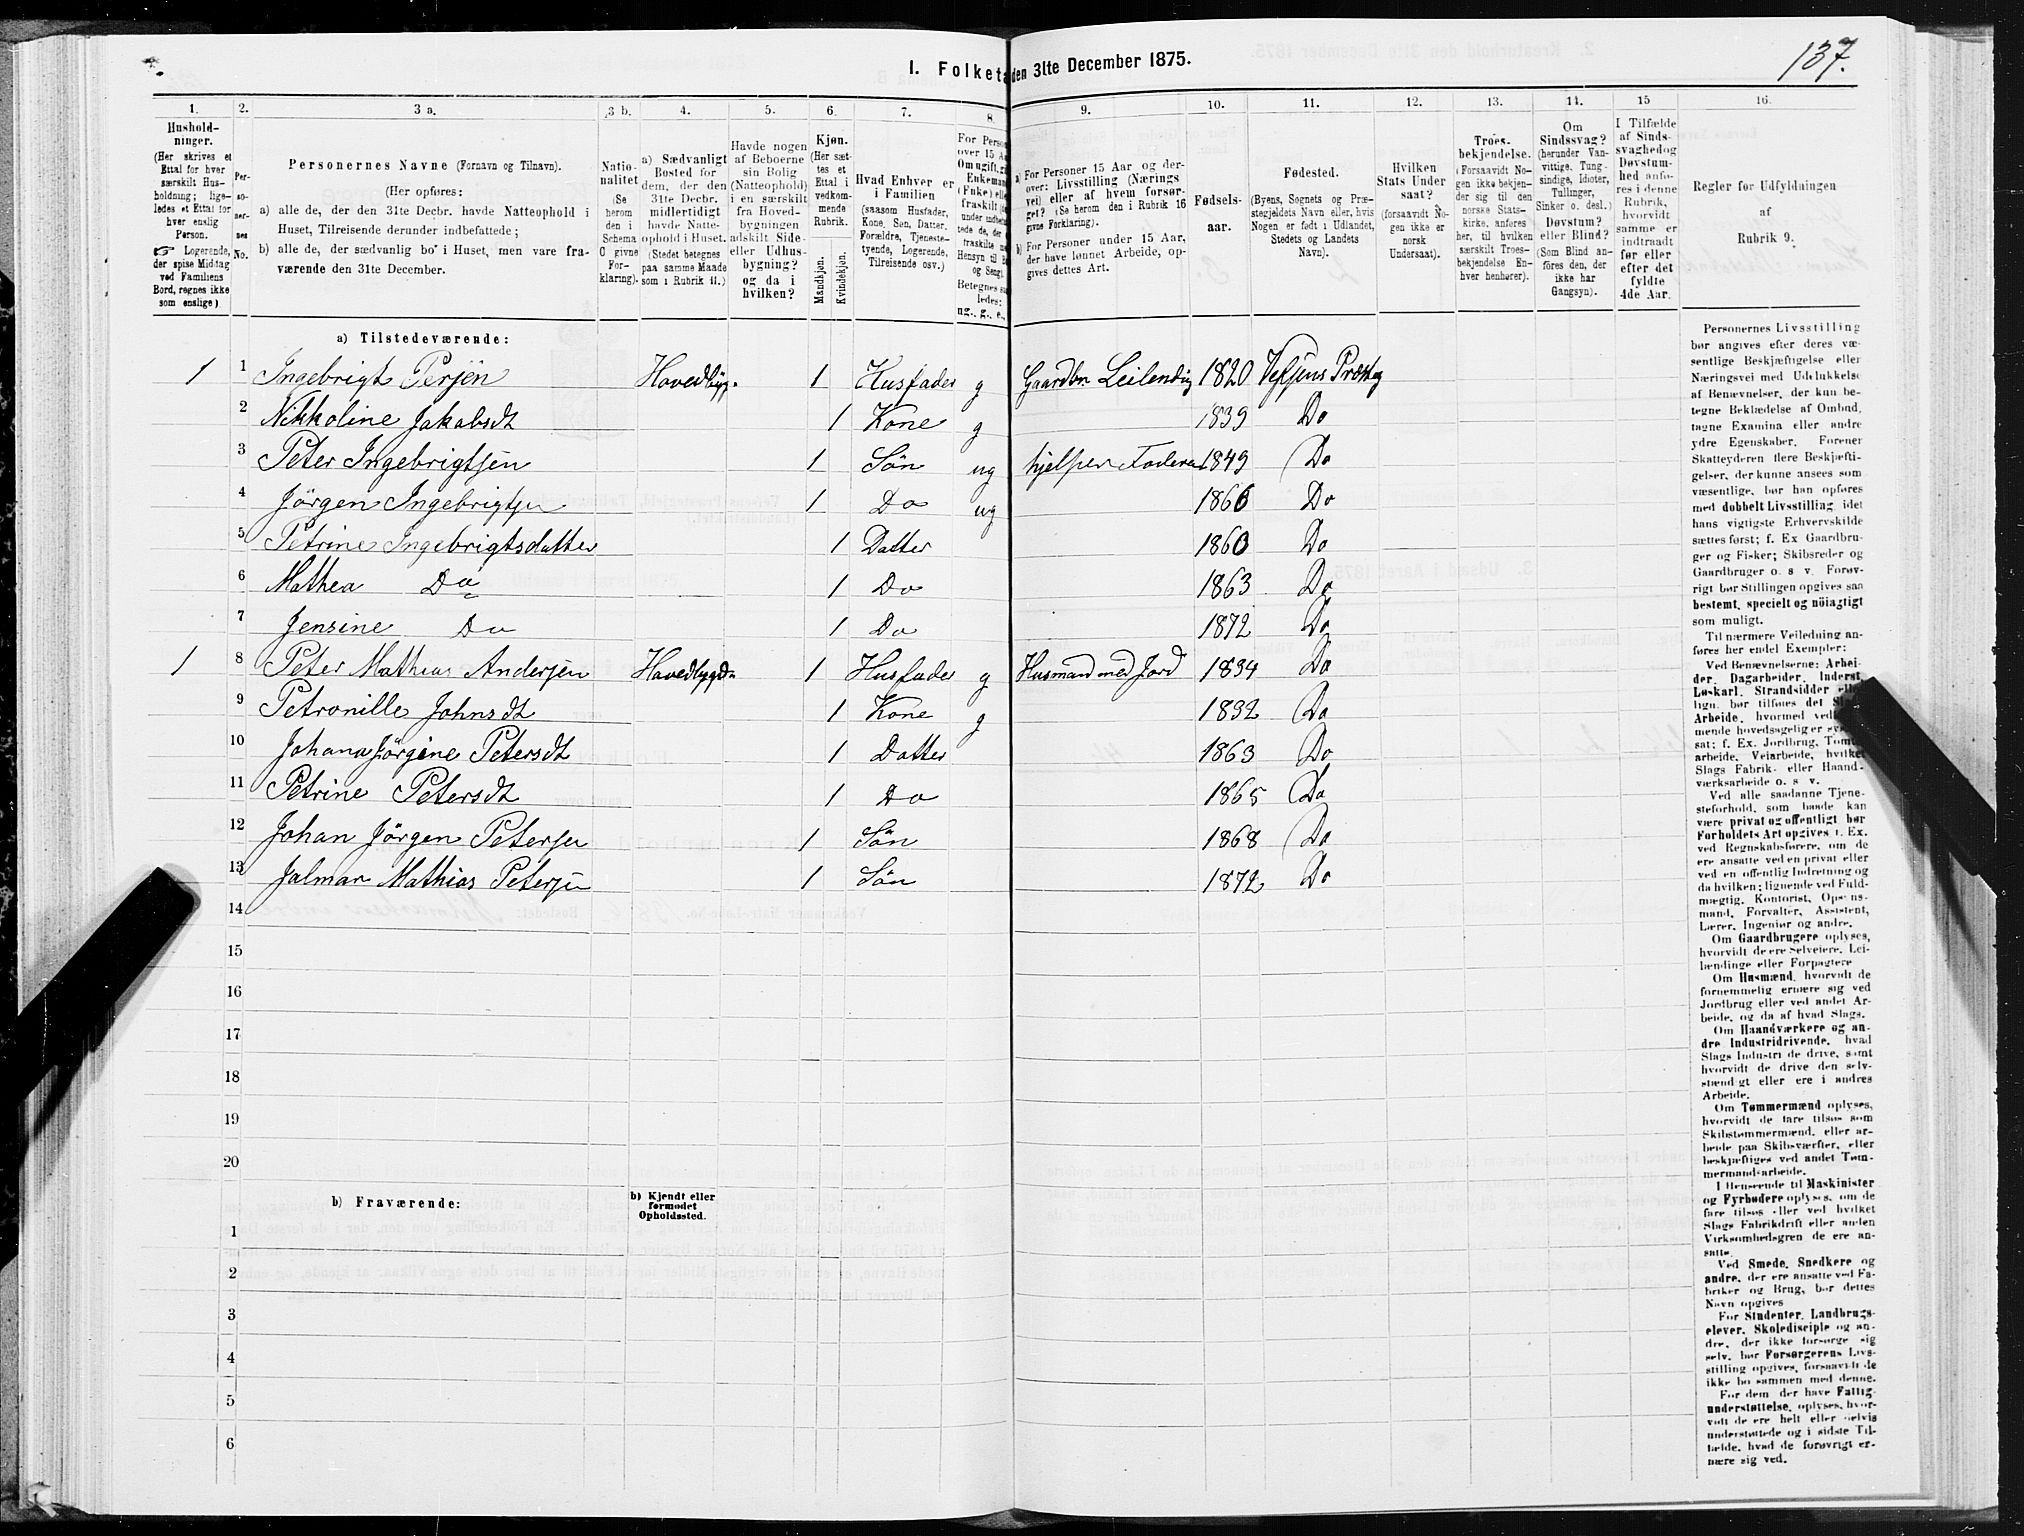 137.
I. Folketa
den 31te December 1875.
1. 2. 3 a. 3 b. 4. 5. 6. 7. 8. 9. 10. 11. 12. 13. 14. 15 16.
Hushold-
ninger.
(Her skrives et
Ettal for hver
særskilt Hus-
holdning; lige-
ledes et Ettal for
hver enslig
Person.
☞ Logerende,
der spise Middag
ved Familiens
Bord, regnes ikke
som enslige).
Per-
so-
ner-
nes
No.
Personernes Navne (Fornavn og Tilnavn).
(Her opføres:
a) alle de, der den 31te Decbr. havde Natteophold i
Huset, Tilreisende derunder indbefattede;
b) alle de, der sædvanlig bo' i Huset, men vare fra-
værende den 31te December.
Natio-
nalitet
(Se
herom
den i
Schema
C givne
For-
klaring).
a) Sædvanligt
Bosted for
dem, der den
31te Decbr.
midlertidigt
havde Natte-
ophold i Huset.
(Stedet betegnes
paa samme Maade
som i Rubrik 11.)
Havde nogen
af Beboerne
sin Bolig
(Natteophold)
i en særskilt
fra Hoved-
bygningen
adskilt Side-
eller Udhus-
bygning?
og da i
hvilken?
Kjøn.
(Her sæt-
tes et
Ettal i
vedkom-
mende
Rubrik.
Mandkjøn.
Kvindekjøn.
Hvad Enhver er
i Familien
(saasom Husfader,
Kone, Søn, Datter,
Forældre, Tjeneste-
tyende, Logerende,
Tilreisende osv.)
For Person
over 15 A
Om ugift, gi
Enkeman
(Fuke) elle
fraskilt
Betegnes sa
ledes:
ug., g., e.,
a) For Personer 15 Aar og der-
over: Livsstilling (Nærings
vei) eller af hvem forsør-
get? (Se herom den i Rubrik 16
givne Forklaring).
b) For Personer under 15 Aar,
der have lønnet Arbeide, op-
gives dettes Art.
Fødsels-
aar.
Fødested.
(Byens, Sognets og Præ-
stegjeldets Navn eller, hvis
Nogen er født i Udlandet,
Stedets og Landets
Navn).
Hvilken
Stats Under
saat?
(forsaavidt No-
gen ikke er
norsk
Undersaat).
Troes-
bekjendelse.
(Forsaavidt No-
gen ikke bekjen-
der sig til den
norske Stats-
kirke, anføres
her, til hvilken
særskilt Troes-
bekjendelse En-
hver henhører).
Om
Sindssvag?
(herunder Van-
vittige, Tung-
sindige, Idioter,
Tullinger,
Sinker o. desl.)
Døvstum?
eller Blind?
(Som Blind an-
føres den, der
ikke har
Gangsyn).
I Tilfælde
af Sinds-
svaghed og
Døvstum-
hed anfø-
res i denne
Rubrik,
hvorvidt
samme er
indtraadt
før eller
efter det
fyldte
4de Aar.
Regler for Udfyldningen
af
Rubrik 9.
a) Tilstedeværende:
1 1 Ingebrigt Persen Hovedbyg. 1 Husfader g Gaardbr. Leilending 1820 Vefsens Prestg
2 Nikkoline Jakobsdt 1 Kone g 1839 Do
3 Peter Ingebrigtsen 1 Sön ug hjelper Faderen 1849 Do
4 Jörgen Ingebrigtsen 1 Do ug 1860 Do
5 Petrine Ingebrigtsdatter 1 Datter 1860 Do
6 Mathea Do 1 Do 1863 Do
7 Jensine Do 1 Do 1872 Do
1 8 Peter Mathias Andersen Hovedbygd. 1 Husfader g Husmand med Jord 1834 Do
9 Petronille Johnsdt 1 Kone g 1832 Do
10 Johana Jörgine Petersdt 1 Datter 1863 Do
11 Petrine Petersdt 1 Do 1865 Do
12 Johan Jörgen Petersen 1 Sön 1868 Do
13 Jalmar Mathias Petersen 1 Sön 1872 Do
14
15
16
17
18
19
20
b) Fraværende:
b) Kjendt eller
formodet
Opholdssted.
1
2
3
4
5
6
Personernes Livsstilling
bør angives efter deres væ-
sentlige Beskjæftigelse eller
Næringsvei med Udelukkelse
af Benævnelser, der kun be-
tegne Beklædelse af Ombud,
tagne Examina eller andre
ydre Egenskaber. Forener
Skatteyderen flere Beskjæfti-
gelser, der kunne ansees som
væsentlige, bør han opføres
med dobbelt Livsstilling, idet
hans vigtigste Erhvervskilde
sættes først; f. Ex Gaardbru-
ger og Fisker; Skibsreder og
Gaardbruger o. s v. Forøv-
rigt bør Stillingen opgives saa
bestemt, specielt og nöiagtigt
som muligt.
Til nærmere Veiledning an-
føres her endel Exempler:
Ved Benævnelserne: Arbei-
der, Dagarbeider, Inderst,
Løskarl, Strandsidder
lign. bør tilføies det
Arbeide, hvormed
mende hovedsagelig er
sat; f. Ex. Jordbrug,
arbeide, Veiarbeide, hvilket
Slags Fabrik- eller Haand-
værksarbeide o. s v.
Ved alle saadanne Tjene-
steforhold, som baade kan
være privat og offentligt bør
Forholdets Art opgives, f. Ex.
ved Regnskabsførere, om de
ere ansatte ved en privat eller
ved en offentlig Indretning og
da hvilken; lignende ved Fuld-
mægtig, Kontorist, Opsyns-
mand, Forvalter, Assistent,
Lærer, Ingeniør og andre.
Om Gaardbrugere oplyses,
hvorvidt de ere Selveiere, Lei-
lændinge eller Forpagtere
Om Husmænd, hvorvidt de
fornemmelig ernære sig ved
Jordbrug eller ved andet Ar-
beide, og da af hvad Slags.
Om Haandværkere og an-
dre Industridrivende, hvad
Slags Industri de drive, samt
hvorvidt de drive den selv-
stændigt eller ere i andres
Arbeide.
Om Tømmermænd oplyses,
hvorvidt de fare tilsøs som
Skibstømmermænd, eller ar-
beide paa Skibsværfter, eller
beskjæftiges ved andet Tøm-
mermandsarbeide.
I Henseende til Maskinister
og Fyrbødere oplyses, om de
fare tilsøs eller ved hvilket
Slags Fabrikdrift eller anden
Virksomhedsgren de ere an-
satte.
Ved Smede, Snedkere og
andre, der ere ansatte ved Fa-
briker og Brug, bør dettes
Navn opgives
For Studenter, Landbrugs-
elever, Skoledisciple og an-
dre, der ikke forsørge sig
selv, bør Forsørgerens Livs-
stilling opgives, forsaavidt de
ikke bo sammen med denne.
For dem, der have Fattig-
understøttelse, oplyses, hvor-
vidt de ere helt eller delvis
understøttede og i sidste Til-
fælde, hvad de forøvrigt er-
nære sig ved.